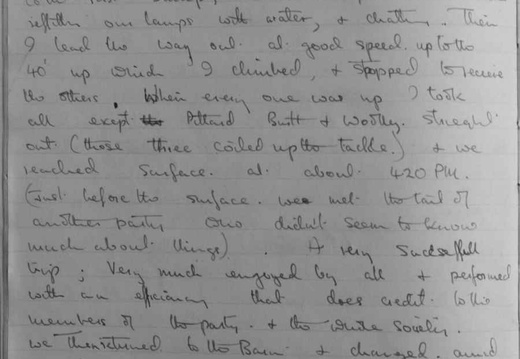 refill our lamps with water, & chatter. Then
I lead the way out at good speed up to the
40' up which I climbed, & stopped to receive
the others. When every one was up I took
all except Pittard Butt & Worthy. straight
out (those three coiled up the tackle.) & we
reached surface at about 4.20 P.M.
(Just before the surface we met the tail of
another party who didn't seem to know
much about things). A very successfull
trip; Very much enjoyed by all & performed
with an efficiency that does credit to the
members of the party & the whole society.
we then returned to the Barn & changed and